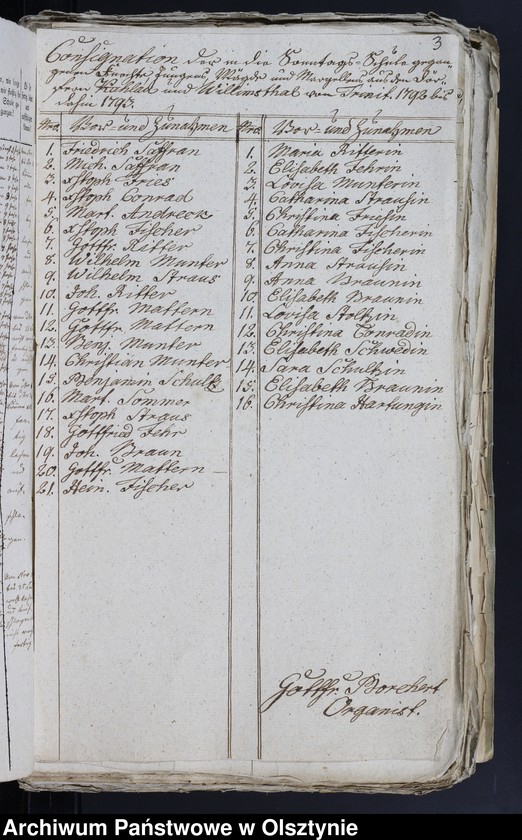 3
Consignation der in die Sonntags-Schule gegan-
genen Knechte Jungens, Mägde und Margellens aus den Dör-
fern Kahlau und Willimsthal von Trinit. 1792 bis
dahin 1793.
Nro. Vor- und Zunahmen
1. Friedrich Saffran
2. Mich. Saffran
3. xstoph Fries
4. xstoph Conrad
5. Mart. Andreck
6. xstoph Fischer
7. Gottfr. Ritter
8. Wilhelm Munter
9. Wilhelm Straus
10. Joh. Ritter
11. Gottfr. Mattern
12. Gottfr. Mattern
13. Benj. Munter
14. Christian Munter
15. Benjamin Schultz
16. Mart. Sommer
17. xstoph Straus
18. Gottfried Fehr
19. Joh. Braun
20. Gottfr. Mattern
21. Hein. Fischer
Nro. Vor- und Zunahmen
1. Maria Ritterin
2. Elisabeth Fehrin
3. Lovisa Munterin
4. Catharina Strausin
5. Christina Friesin
6. Catharina Fischerin
7. Christina Fischerin
8. Anna Strausin
9. Anna Braunin
10. Elisabeth Braunin
11. Lovisa Stoltzin
12. Christina Conradin
13. Elisabeth Schwedin
14. Sara Schultzin
15. Elisabeth Braunin
16. Christina Hartungin
Gottfr. Borchert
Organist.
Archiwum Państwowe w Olsztynie